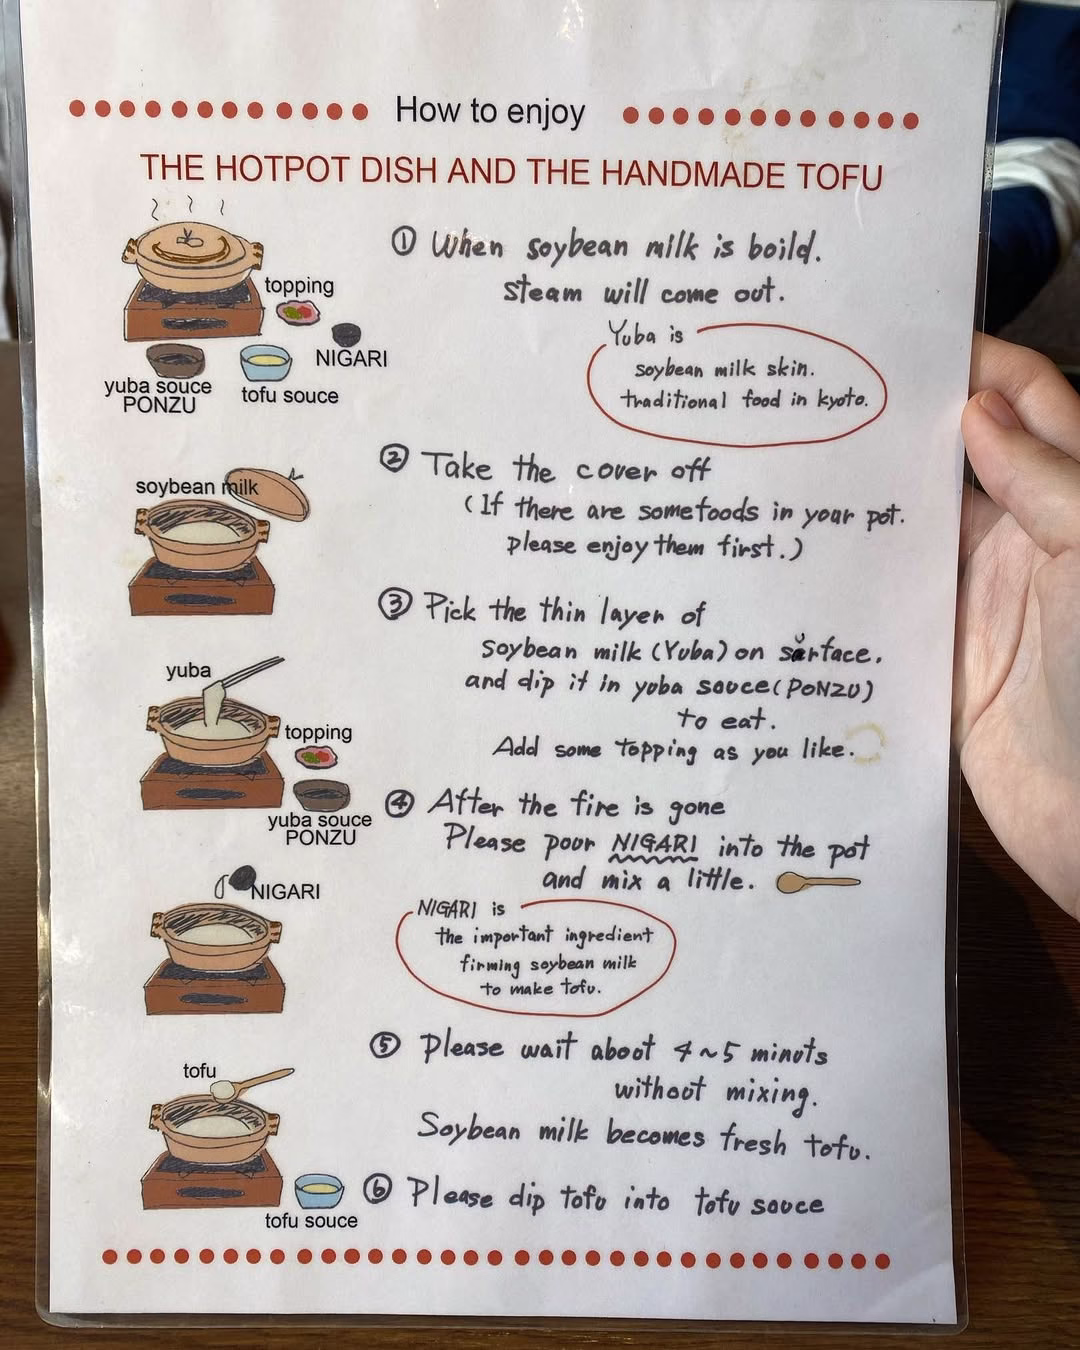 How to enjoy
THE HOTPOT DISH AND THE HANDMADE TOFU
topping
NIGARI
yuba souce
PONZU
tofu souce
① When soybean milk is boild.
steam will come out.
Yuba is
soybean milk skin.
traditional food in kyoto.
soybean milk
② Take the cover off
(If there are somefoods in your pot.
please enjoy them first.)
③ Pick the thin layer of
soybean milk (Yuba) on surface.
and dip it in yuba souce (PONZU)
to eat.
Add some topping as you like.
yuba
topping
yuba souce
PONZU
④ After the fire is gone
Please pour NIGARI into the pot
and mix a little.
NIGARI
NIGARI is
the important ingredient
firming soybean milk
to make tofu.
⑤ Please wait about 4~5 minuts
without mixing.
Soybean milk becomes fresh tofu.
tofu
tofu souce
⑥ Please dip tofu into tofu souce